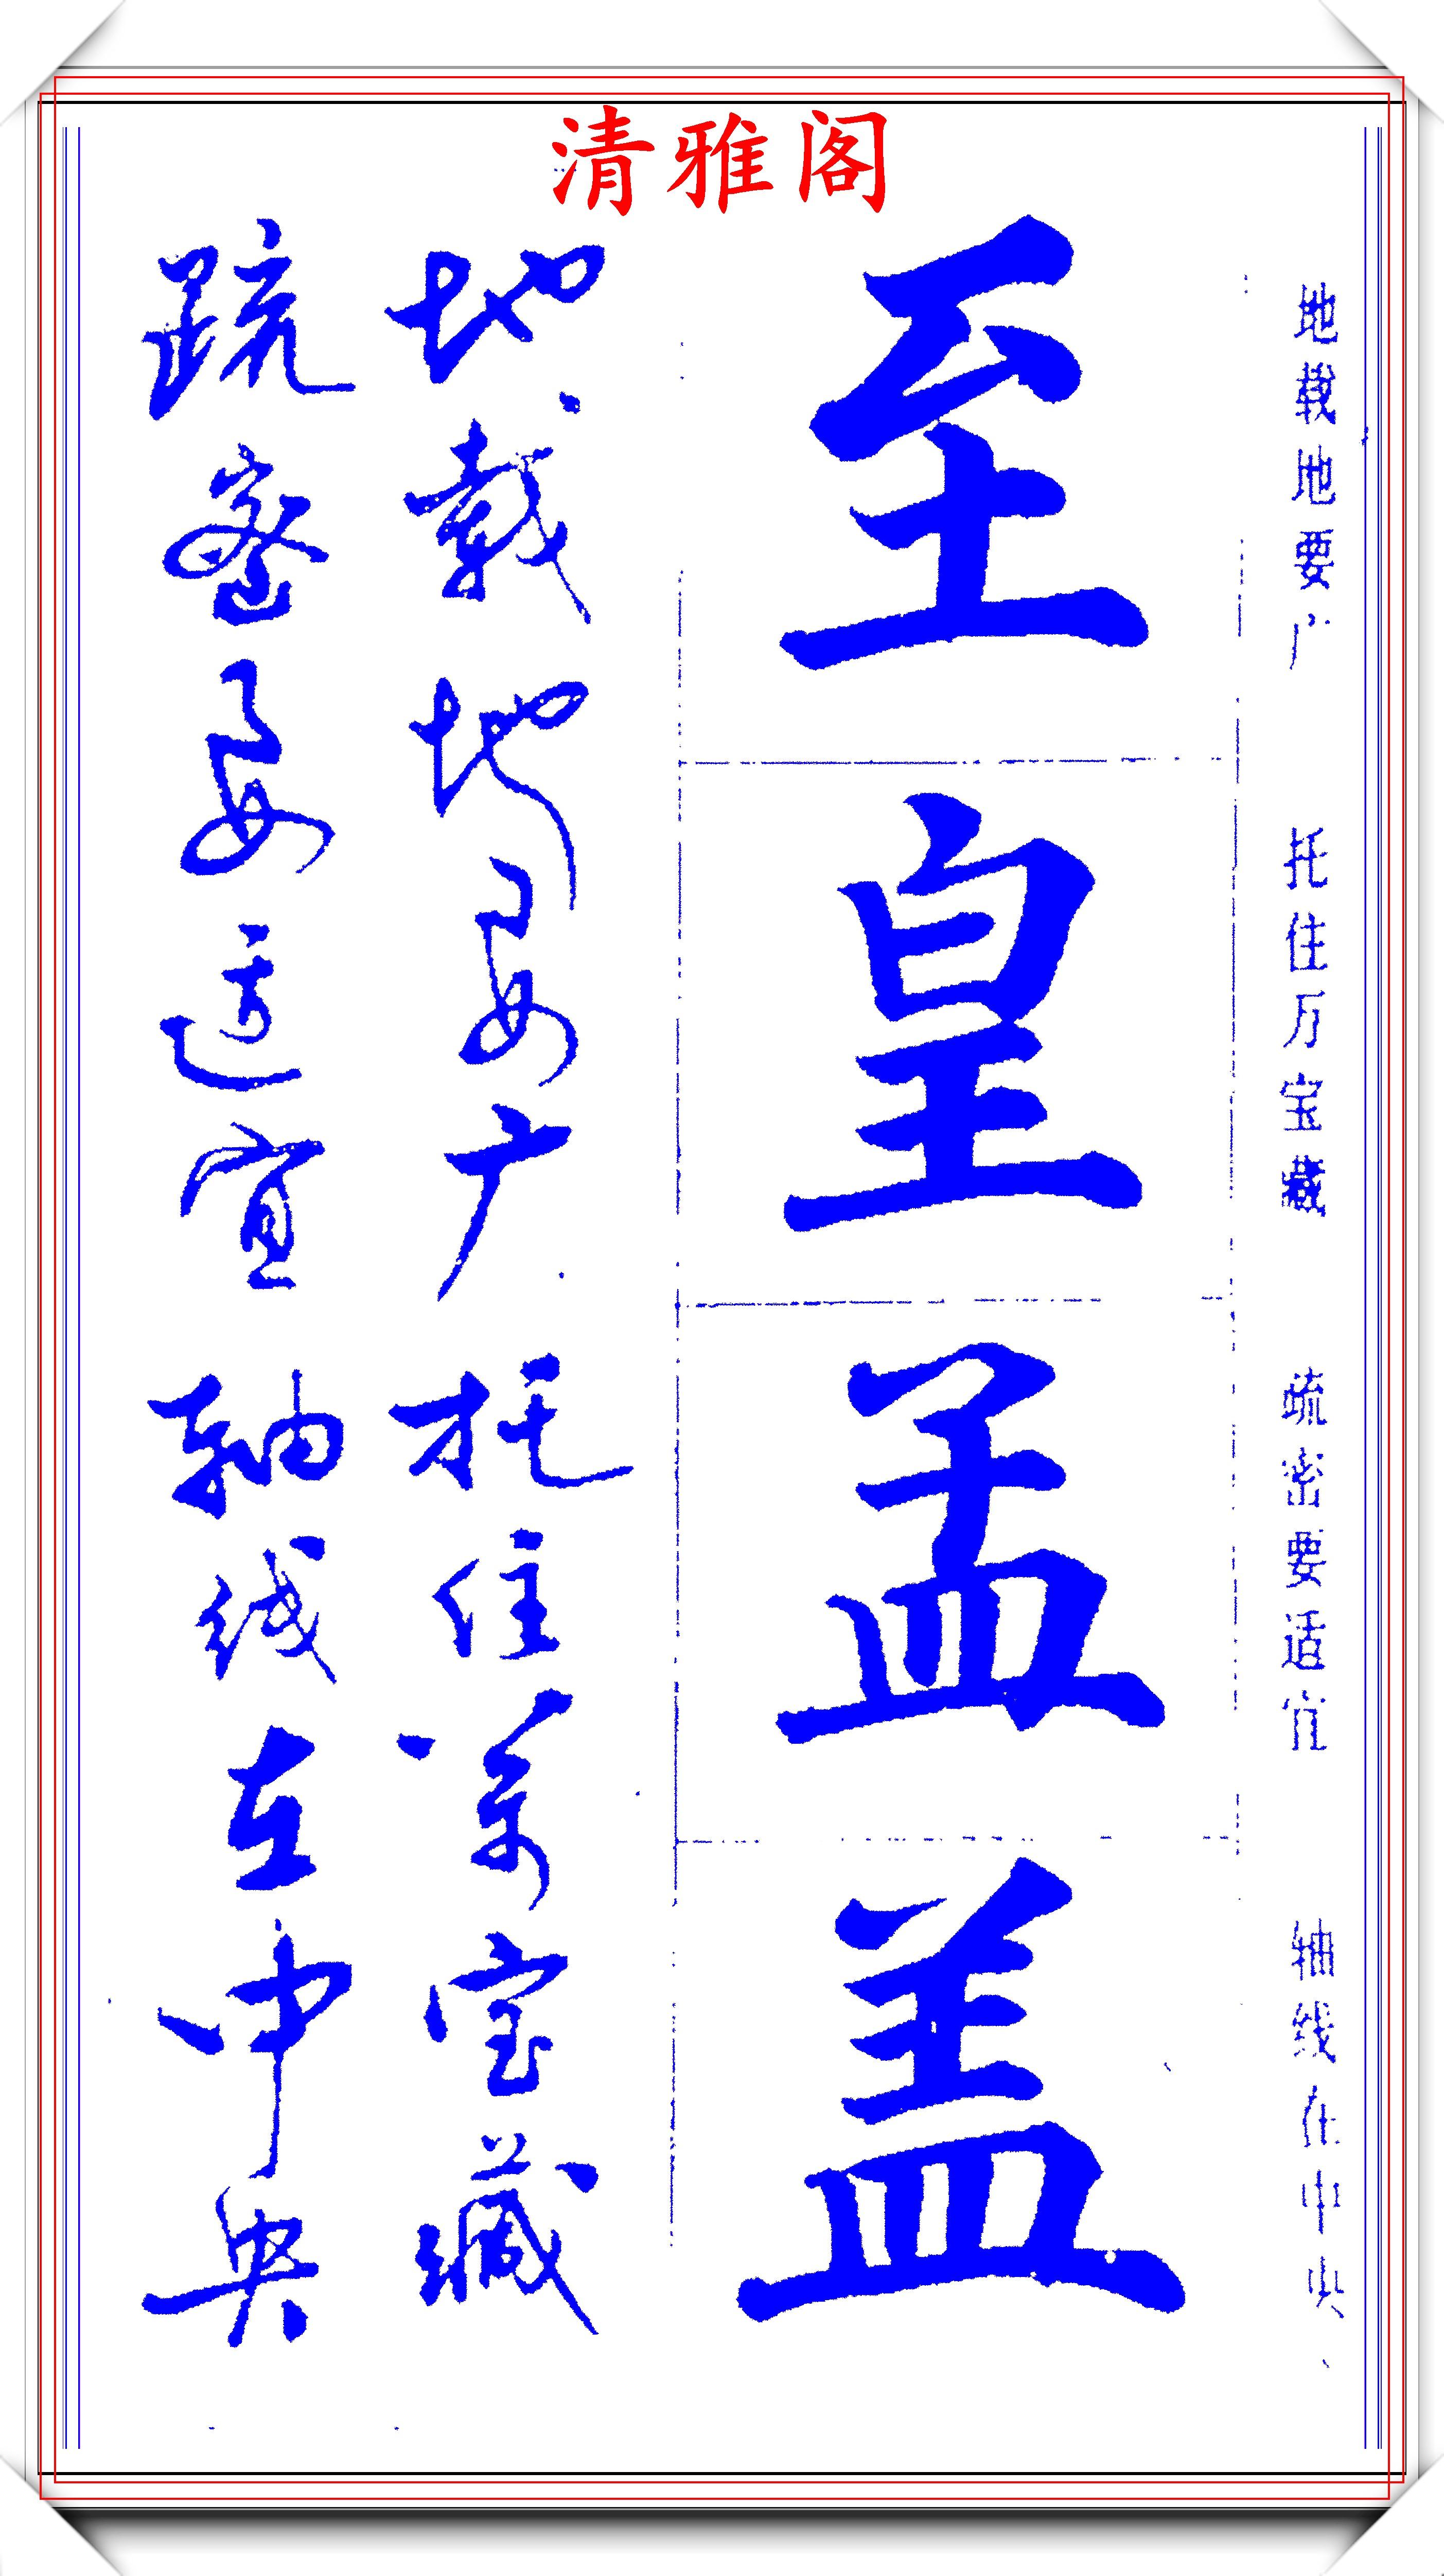 清雅阁
地载地要广 托住万宝藏 疏密要适宜 轴线在中央
至皇孟盖
地载地要广 托住万宝藏
疏密要适宜 轴线在中央